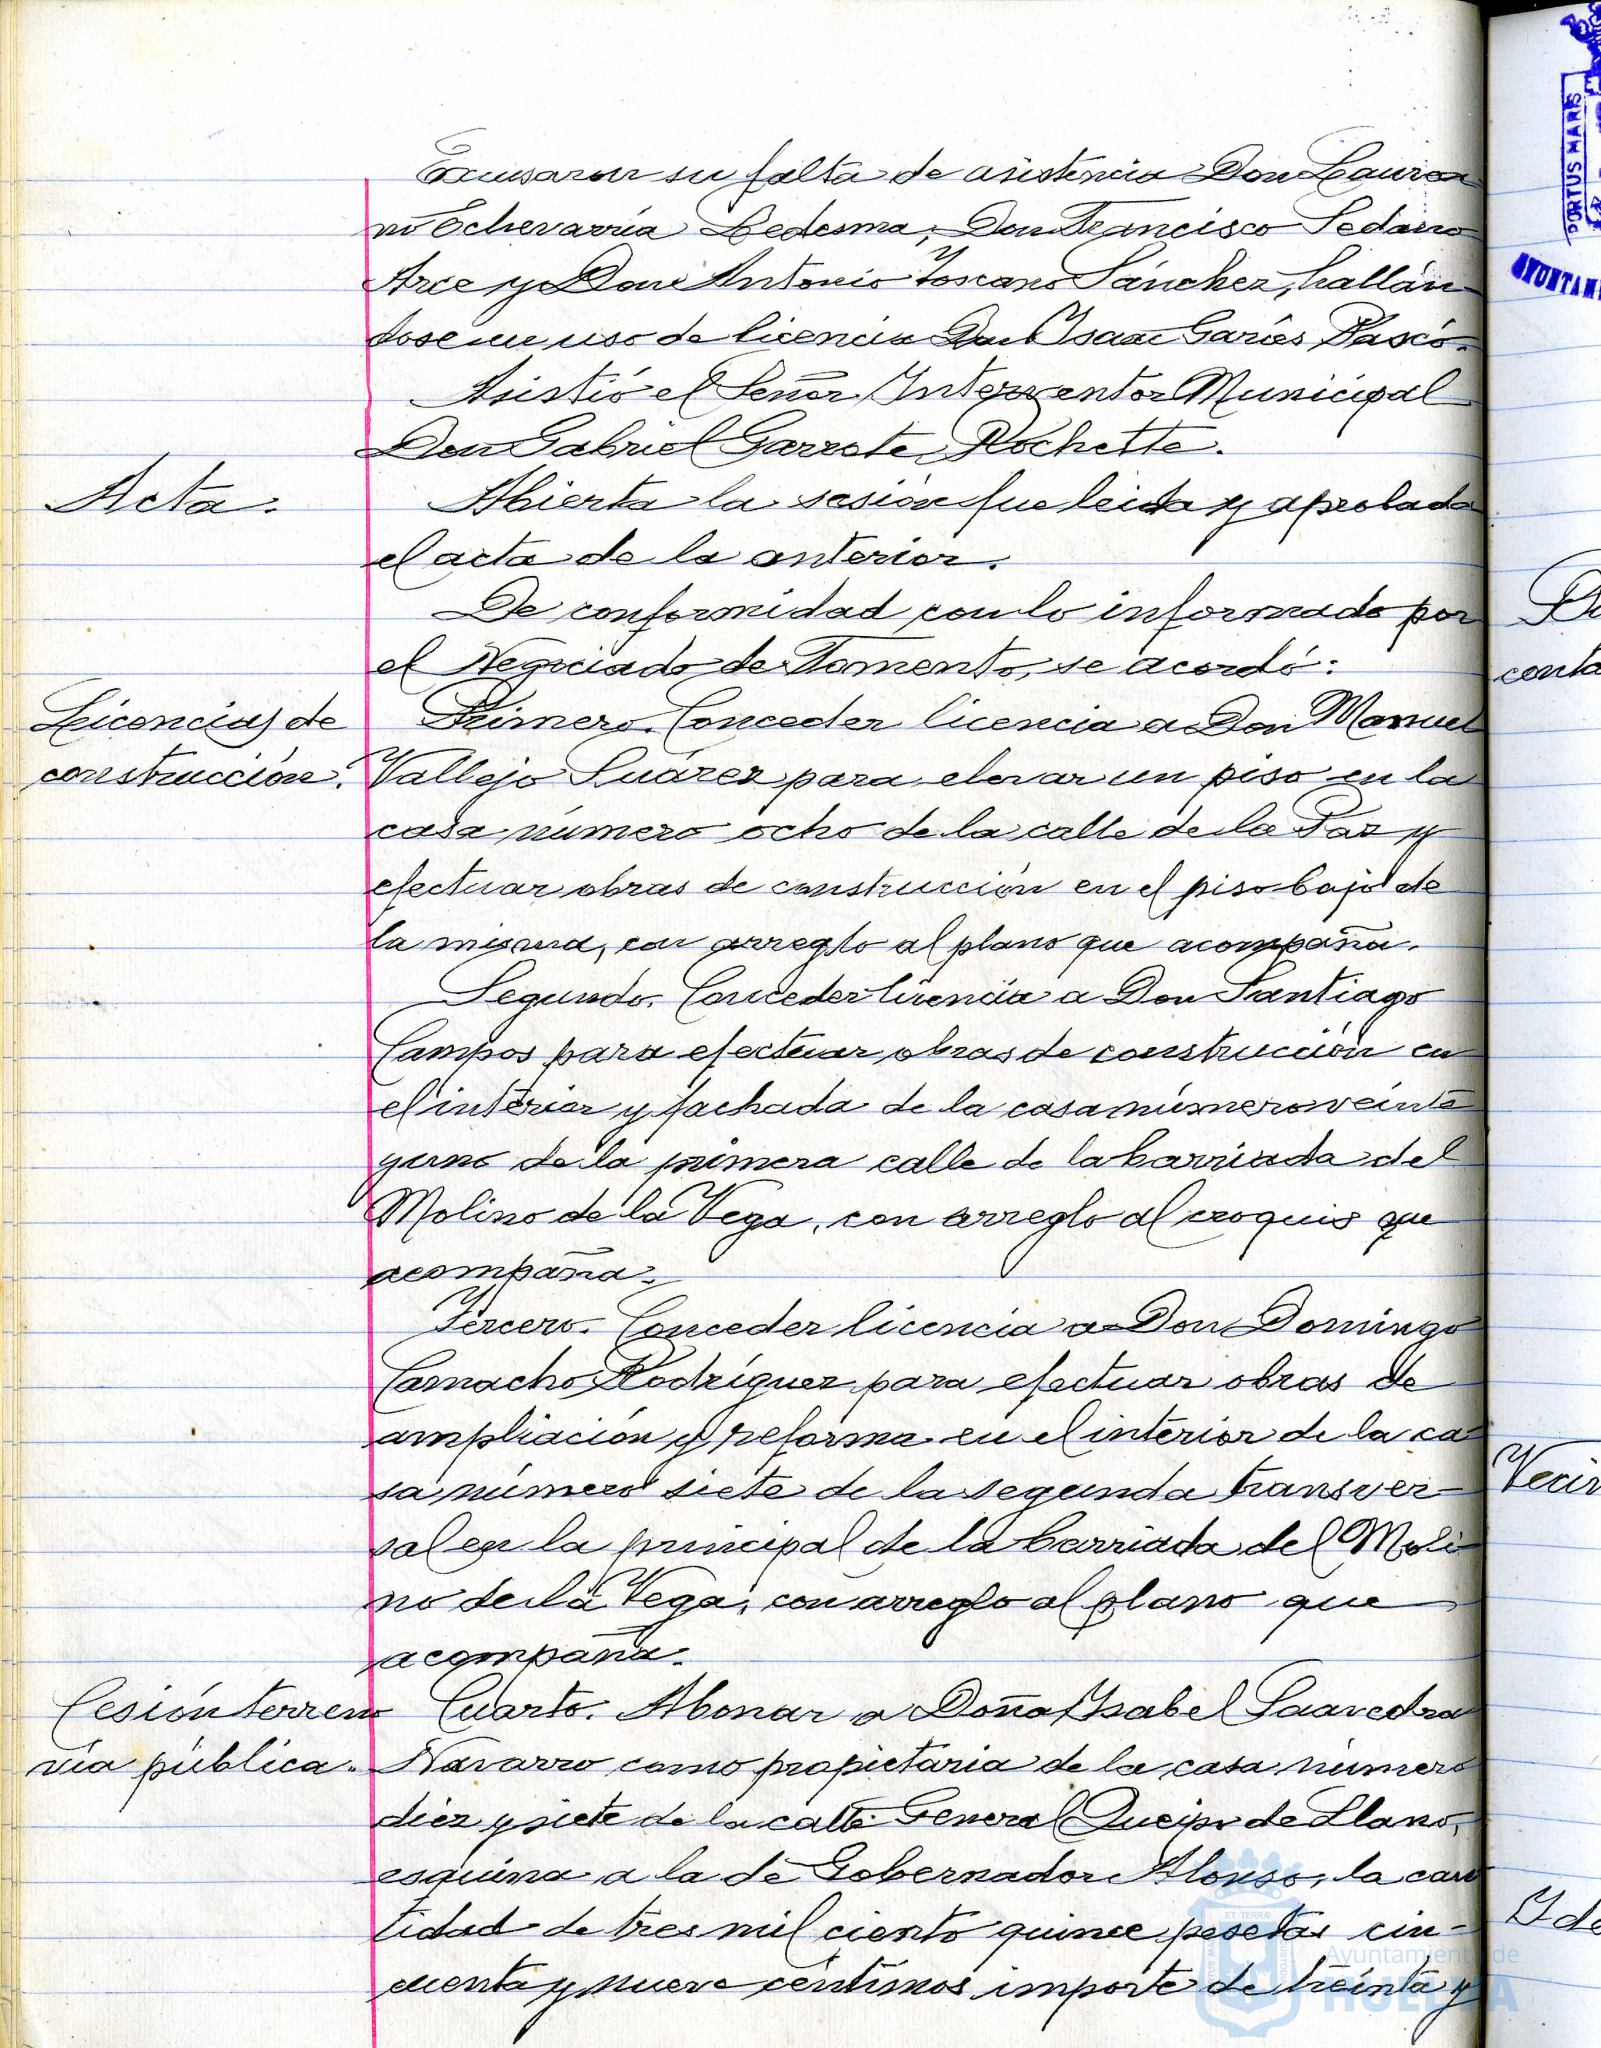 Excusaron su falta de asistencia Don Laurea
no Echevarría Ledesma, Don Francisco Sedano
Arce y Don Antonio Toscano Sánchez, hallán
dose en uso de licencia Don Isaac Garcés Pascó.
Asistió el Señor Interventor Municipal
Don Gabriel Garrote Rochette.
Acta.
Abierta la sesión fue leida y aprobada
el acta de la anterior.
De conformidad con lo informado por
el Negociado de Fomento, se acordó:
Licencias de
construcción.
Primero. Conceder licencia a Don Manuel
Vallejo Suárez para elevar un piso en la
casa número ocho de la calle de la Paz y
efectuar obras de construcción en el piso bajo de
la misma, con arreglo al plano que acompaña.
Segundo. Conceder licencia a Don Santiago
Campos para efectuar obras de construcción en
el interior y fachada de la casa número veinte
y uno de la primera calle de la barriada del
Molino de la Vega, con arreglo al croquis que
acompaña.
Tercero. Conceder licencia a Don Domingo
Camacho Rodríguez para efectuar obras de
ampliación y reforma en el interior de la ca
sa número siete de la segunda transver-
sal en la principal de la barriada del Moli
no de la Vega, con arreglo al plano que
acompaña.
Cesión terreno
vía pública.
Cuarto. Abonar a Doña Isabel Saavedra
Navarro como propietaria de la casa número
diez y siete de la calle General Queipo de Llano,
esquina a la de Gobernador Alonso, la can
tidad de tres mil ciento quince pesetas cin-
cuenta y nueve céntimos importe de treinta y
PORTUS MARIS
AYUNTAM
conta
Vecin
Y de
ET TERRAE
Ayuntamiento de
HUELVA